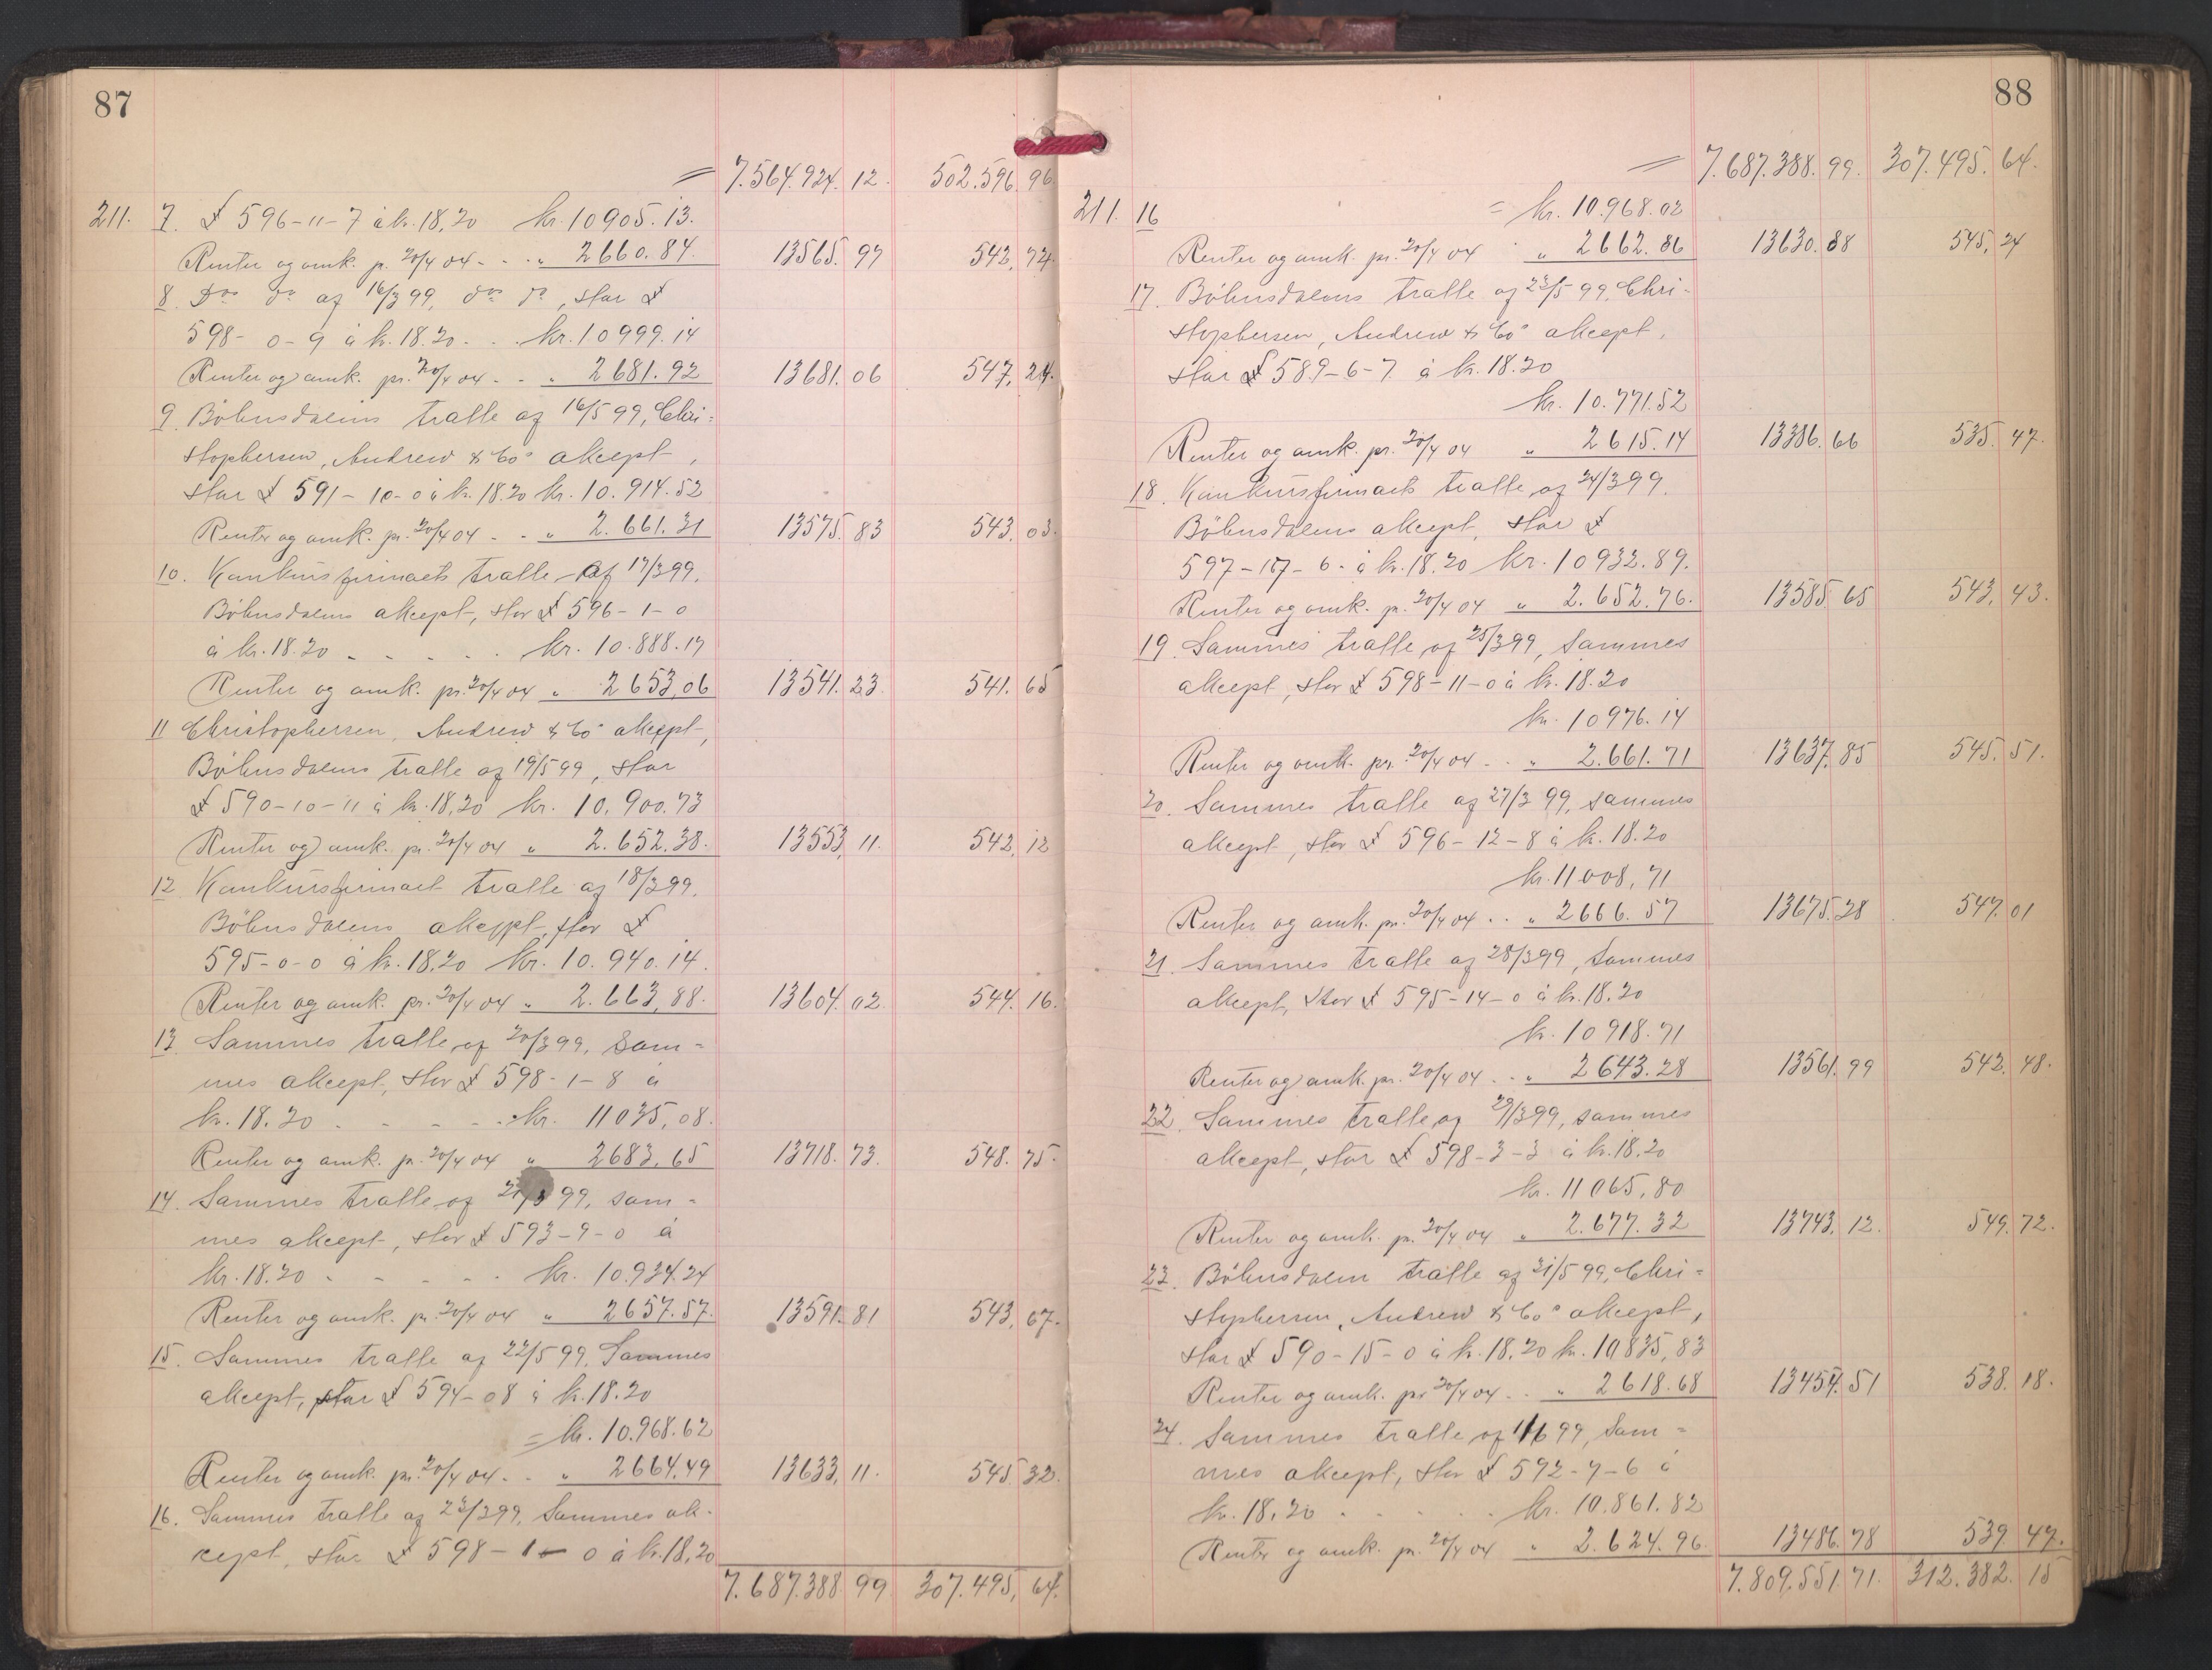 87
= 7.564.924. 12. 502.596. 96.
211. 7. £ 596-11-7 à kr. 18,20 kr. 10905.13.
Renter og omk. p. 20/4 04 - - - „ 2660.84. 13565. 97 542, 72.
8. Dos do af 16/3 99, dos do, stor £
598- 0-9 à kr. 18.20 . . . kr. 10999.14
Renter og omk. pr. 20/4 04 - - „ 2681.92 13681. 06 547, 24.
9. Böhnsdalens tratte af 16/5 99, Chri=
stophersen, Andrew & Co's aksept,
stor £ 591-10-0 à kr. 18.20 kr. 10.914.52
Renter og omk. pr. 20/4 04 - - „ 2.661.31 13575. 83 543. 03.
10. Konkursfirmaets tratte af 17/3 99.
Böhnsdalens aksept, stor £ 596-1-0
à kr. 18.20 - - - - . kr. 10.888.17
Renter og omk. pr. 20/4 04 „ 2653,06 13541. 23. 541. 65
11 Christophersen, Andrew & Co's aksept,
Böhnsdalens tratte af 19/5 99, stor
£ 590-10-11 à kr. 18,20 kr. 10.900.73
Renter og omk. pr. 20/4 04 „ 2.652.38. 13553, 11. 542, 12
12 Konkursfirmaet tratte af 18/3 99.
Böhnsdalens aksept, stor £
595-0-0 à kr. 18.20 kr. 10.940.14.
Renter og omk. pr. 20/4 04 „ 2.663,88. 13604. 02. 544. 16.
13. Sammes tratte af 20/3 99, sam=
mes aksept, stor £ 598-1-8 à
kr. 18.20 - - - - kr. 11035,08.
Renter og omk. pr. 20/4 04 „ 2683,65 13718. 73. 548. 75.
14. Sammes tratte af 21/3 99, sam=
mes aksept, stor £ 593-9-0 à
kr. 18.20 - - - - . kr. 10.934.24
Renter og omk. pr. 20/4 04 „ 2657.57. 13591. 81 543, 67.
15. Sammes tratte af 22/5 99, Sammes
aksept, stor £ 594-08 à kr. 18.20
= kr. 10.968.62
Renter og omk. pr. 20/4 04 . . „ 2664.49 13633, 11. 545. 32.
16. Sammes tratte af 23/3 99, Sammes ak-
cept, stor £ 598-1- 0 à kr. 18,20
7.687.388. 99 307.495, 64.
88
= 7.687.388. 99. 307.495. 64.
211. 16 = kr. 10.968.02
Renter og omk. pr. 20/4 04 . „ 2662.86 13630. 88 545, 24
17. Böhnsdalens tratte af 23/5 99, Chri-
stophersen, Andrew & Co's aksept,
stor £ 589-6-7 à kr. 18.20
kr. 10.771.52
Renter og omk. pr. 20/4 04 „ 2615.14 13386. 66 535. 47.
18. Konkursfirmaets tratte af 24/3 99.
Böhnsdalens aksept, stor £
597-17-6 - à kr. 18.20 kr. 10932.89.
Renter og omk. pr. 20/4 04 „ 2.652.76. 13585. 65 543, 43.
19. Sammes tratte af 25/3 99, Sammes
aksept, stor £ 598-11-0 à kr. 18.20
kr. 10976.14
Renter og omk. pr. 20/4 04 . . „ 2.661.71 13637. 85 545. 51.
20. Sammes tratte af 27/3 99, sammes
aksept, stor £ 596-12-8 à kr. 18.20
kr. 11008,71
Renter og omk. pr. 20/4 04 . . „ 2666.57 13675. 28 547. 01
21. Sammes tratte af 28/3 99, Sammes
aksept, stor £ 595-14-0 à kr. 18.20
kr. 10918.71
Renter og omk. pr. 20/4 04 . . „ 2643.28 13561. 99 542. 48.
22. Sammes tratte af 29/3 99, sammes
aksept, stor £ 598-3-3 à kr. 18.20
kr. 11065,80
Renter og omk. pr. 20/4 04 „ 2.677.32 13743. 12. 549. 72.
23. Böhnsdalen tratte af 31/5 99, Chri=
stophersen, Andrew & Co's aksept,
stor £ 590-15-0 à kr. 18,20 kr. 10835,83
Renter og omk. pr 20/4 04 . . „ 2618.68 13454. 51 538. 18.
24. Sammes tratte af 1/6 99, Sam=
mes aksept, stor £ 592-7-6 à
kr. 18,20 . . . . . kr. 10.861.82
Renter og omk. pr. 20/4 04 „ 2.624.96. 13486. 78 539. 47.
7.809.551. 71. 312.382. 15